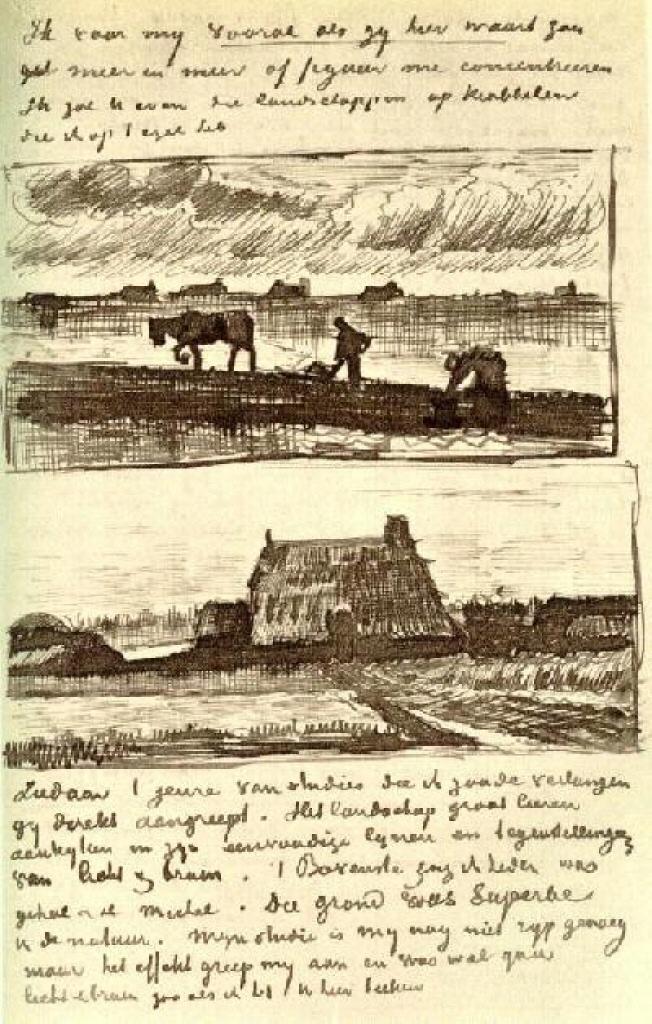 Ik voor my vooral als gy hier waart zou
meer en meer op figuur me concentreeren
Ik zal U even die landschappen op krabbelen
die ik op 't ezel heb
Ziedaar 't genre van studies die ik zoude verlangen
gy direkt aangreept. Het landschap groot leeren
aankyken in zyn eenvoudige lynen en tegenstellingen
van licht & bruin. 't Bovenste zag ik heden was
geheel Michel. Die grond was superbe
in de natuur. Myn studie is my nog niet ryp genoeg
maar het effekt greep my aan en was wat
licht & bruin zoo als ik het U hier teeken